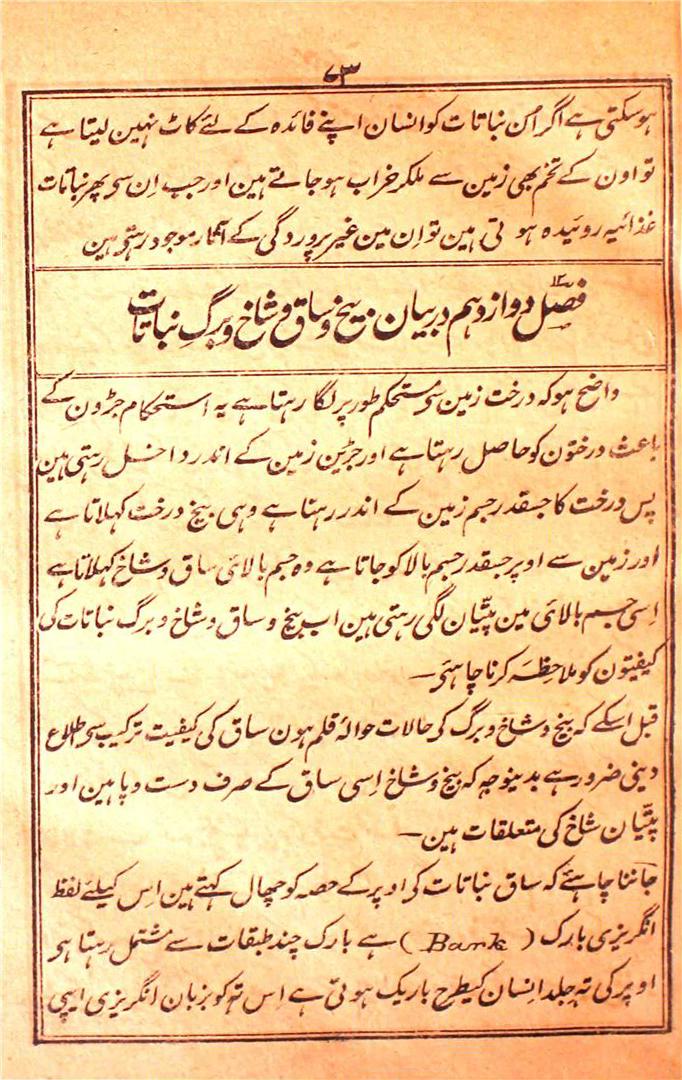 ۷۳
ہوسکتی ہے اگر اُن نباتات کو انسان اپنے فائدہ کے لئے کاٹ نہین لیتا ہے
تو اون کے تخم بھی زمین سے ملکر خراب ہوجاتے ہین اور جب اِن سی پھر نباتات
غذائیہ روئیدہ ہوتی ہین تو اِن مین غیر پروردگی کے آثار موجود رہتی ہین
فصل دوازدہم در بیان بیخ و ساق و شاخ و برگ نباتات
۱۲
واضح ہو کہ درخت زمین سی مستحکم طور پر لگا رہتا ہے یہ استحکام جڑون کے
باعث درختون کو حاصل رہتا ہے اور جڑین زمین کے اندر داخل رہتی ہین
پس درخت کا جسقدر جسم زمین کے اندر رہتا ہے وہی بیخ درخت کہلاتا ہے
اور زمین سے اوپر جسقدر جسم بالا کو جاتا ہے وہ جسم بالائی ساق و شاخ کہلاتا ہے
اِسی جسم بالائی مین پتّیان لگی رہتی ہین اب بیخ و ساق و شاخ و برگ نباتات کی
کیفیتون کو ملاحظہ کرنا چاہئی ـ
قبل اسکے کہ بیخ و شاخ و برگ کی حالات حوالۂ قلم ہون ساق کی کیفیت ترکیب سی اطلاع
دینی ضرور ہے بدینوجہ کہ بیخ و شاخ اِسی ساق کے صرف دست و پا ہین اور
پتّیان شاخ کی متعلقات ہین ـ
جاننا چاہئے کہ ساق نباتات کی اوپر کے حصہ کو چھال کہتے ہین اس کیلئے لفظ
انگریزی بارک ( Bark ) ہے بارک چند طبقات سے مشتمل رہتا ہی
اوپر کی تہ جلد انسان کیطرح باریک ہوتی ہے اِس تہ کو بزبان انگریزی ایپی